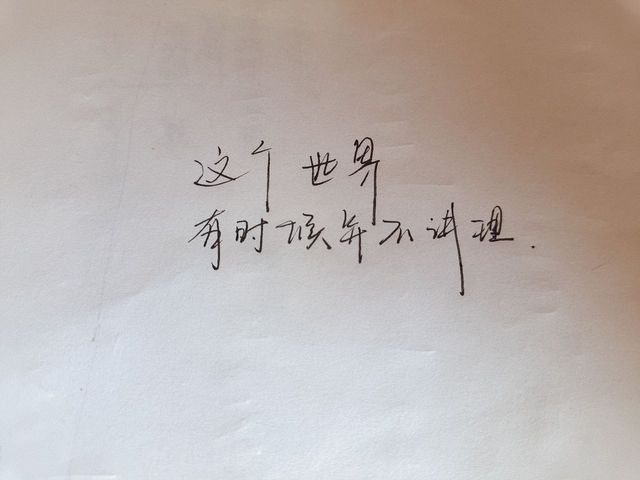 这个世界
有时候并不讲理.